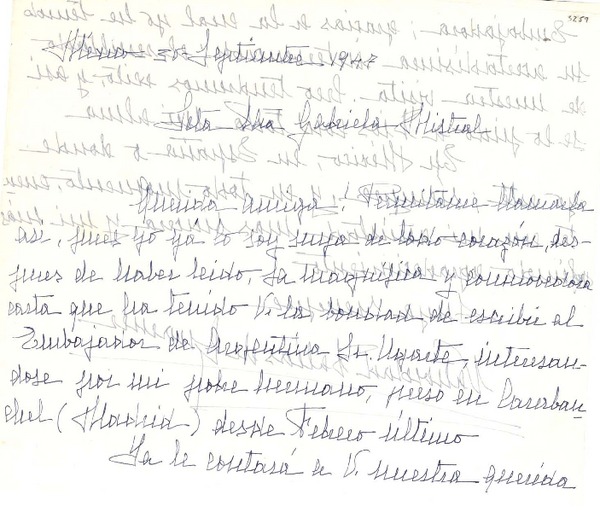 5259
México 30 Septiembre 1947
Srta Dña Gabriela Mistral
Querida amiga: Permítame llamarla
así, pues yo ya lo soy suya de todo corazón, des-
pues de haber leido, la magnífica y conmovedora
carta que ha tenido V. la bondad de escribir al
Embajador de Argentina Sr. Ugarte, interesan-
dose por mi pobre hermano, preso en Caraban
chel (Madrid) desde Febrero último
Ya le contará a V. nuestra querida